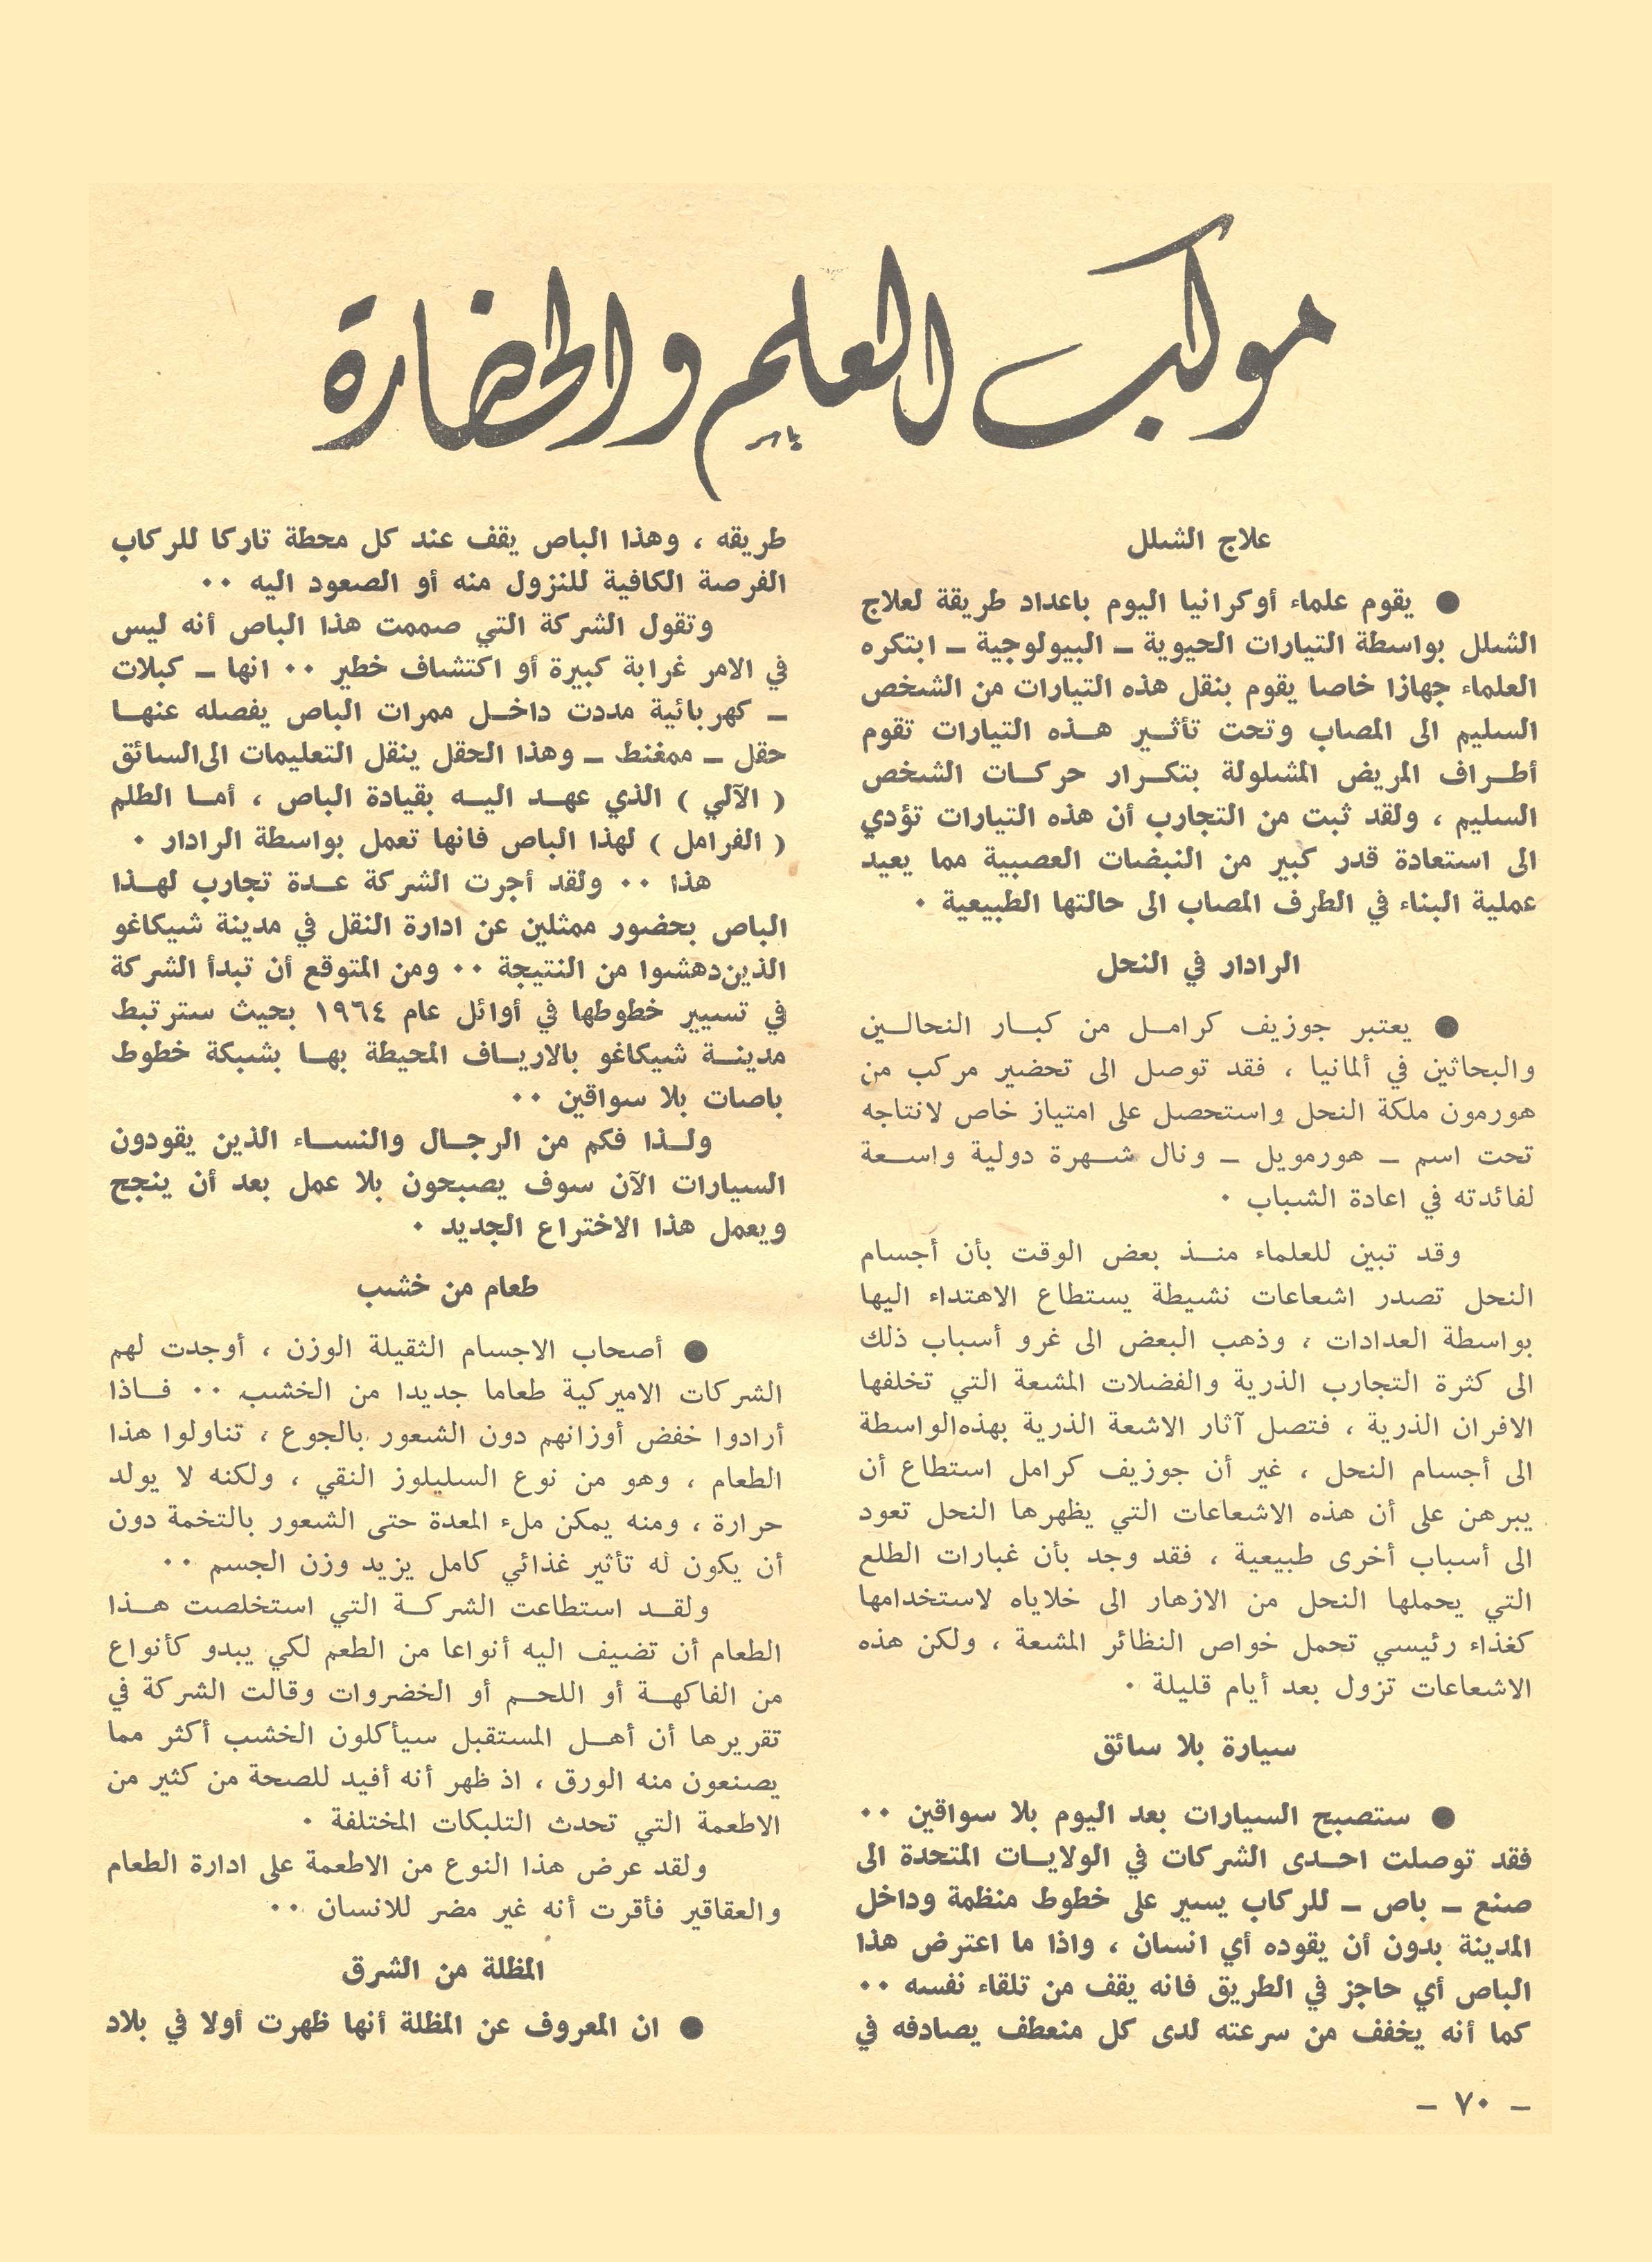 موكب العلم والحضارة
ياسر
علاج الشلل
● يقوم علماء أوكرانيا اليوم باعداد طريقة لعلاج
الشلل بواسطة التيارات الحيوية ــ البيولوجية ــ ابتكره
العلماء جهازا خاصا يقوم بنقل هذه التيارات من الشخص
السليم الى المصاب وتحت تأثير هذه التيارات تقوم
أطراف المريض المشلولة بتكرار حركات الشخص
السليم ، ولقد ثبت من التجارب أن هذه التيارات تؤدي
الى استعادة قدر كبير من النبضات العصبية مما يعيد
عملية البناء في الطرف المصاب الى حالتها الطبيعية ٠
الرادار في النحل
● يعتبر جوزيف كرامل من كبار النحالين
والبحاثين في ألمانيا ، فقد توصل الى تحضير مركب من
هورمون ملكة النحل واستحصل على امتياز خاص لانتاجه
تحت اسم ــ هورمويل ــ ونال شهرة دولية واسعة
لفائدته في اعادة الشباب ٠
وقد تبين للعلماء منذ بعض الوقت بأن أجسام
النحل تصدر اشعاعات نشيطة يستطاع الاهتداء اليها
بواسطة العدادات ، وذهب البعض الى غرو أسباب ذلك
الى كثرة التجارب الذرية والفضلات المشعة التي تخلفها
الافران الذرية ، فتصل آثار الاشعة الذرية بهذه الواسطة
الى أجسام النحل ، غير أن جوزيف كرامل استطاع أن
يبرهن على أن هذه الاشعاعات التي يظهرها النحل تعود
الى أسباب أخرى طبيعية ، فقد وجد بأن غبارات الطلع
التي يحملها النحل من الازهار الى خلاياه لاستخدامها
كغذاء رئيسي تحمل خواص النظائر المشعة ، ولكن هذه
الاشعاعات تزول بعد أيام قليلة ٠
سيارة بلا سائق
● ستصبح السيارات بعد اليوم بلا سواقين ٠٠
فقد توصلت احدى الشركات في الولايات المتحدة الى
صنع ــ باص ــ للركاب يسير على خطوط منظمة وداخل
المدينة بدون أن يقوده أي انسان ، واذا ما اعترض هذا
الباص أي حاجز في الطريق فانه يقف من تلقاء نفسه ٠٠
كما أنه يخفف من سرعته لدى كل منعطف يصادفه في
طريقه ، وهذا الباص يقف عند كل محطة تاركا للركاب
الفرصة الكافية للنزول منه أو الصعود اليه ٠٠
وتقول الشركة التي صممت هذا الباص أنه ليس
في الامر غرابة كبيرة أو اكتشاف خطير ٠٠ انها ــ كبلات
ــ كهربائية مددت داخل ممرات الباص يفصله عنها
حقل ــ ممغنط ــ وهذا الحقل ينقل التعليمات الى السائق
( الآلي ) الذي عهد اليه بقيادة الباص ، أما الطلم
( الفرامل ) لهذا الباص فانها تعمل بواسطة الرادار ٠
هذا ٠٠ ولقد أجرت الشركة عدة تجارب لهذا
الباص بحضور ممثلين عن ادارة النقل في مدينة شيكاغو
الذين دهشوا من النتيجة ٠٠ ومن المتوقع أن تبدأ الشركة
في تسيير خطوطها في أوائل عام ١٩٦٤ بحيث سترتبط
مدينة شيكاغو بالارياف المحيطة بها بشبكة خطوط
باصات بلا سواقين ٠٠
ولذا فكم من الرجال والنساء الذين يقودون
السيارات الآن سوف يصبحون بلا عمل بعد أن ينجح
ويعمل هذا الاختراع الجديد ٠
طعام من خشب
● أصحاب الاجسام الثقيلة الوزن ، أوجدت لهم
الشركات الاميركية طعاما جديدا من الخشب ٠٠ فاذا
أرادوا خفض أوزانهم دون الشعور بالجوع ، تناولوا هذا
الطعام ، وهو من نوع السليلوز النقي ، ولكنه لا يولد
حرارة ، ومنه يمكن ملء المعدة حتى الشعور بالتخمة دون
أن يكون له تأثير غذائي كامل يزيد وزن الجسم ٠٠
ولقد استطاعت الشركة التي استخلصت هذا
الطعام أن تضيف اليه أنواعا من الطعم لكي يبدو كأنواع
من الفاكهة أو اللحم أو الخضروات وقالت الشركة في
تقريرها أن أهل المستقبل سيأكلون الخشب أكثر مما
يصنعون منه الورق ، اذ ظهر أنه أفيد للصحة من كثير من
الاطعمة التي تحدث التلبكات المختلفة ٠
ولقد عرض هذا النوع من الاطعمة على ادارة الطعام
والعقاقير فأقرت أنه غير مضر للانسان ٠٠
المظلة من الشرق
● ان المعروف عن المظلة أنها ظهرت أولا في بلاد
ــ ٧٠ ــ